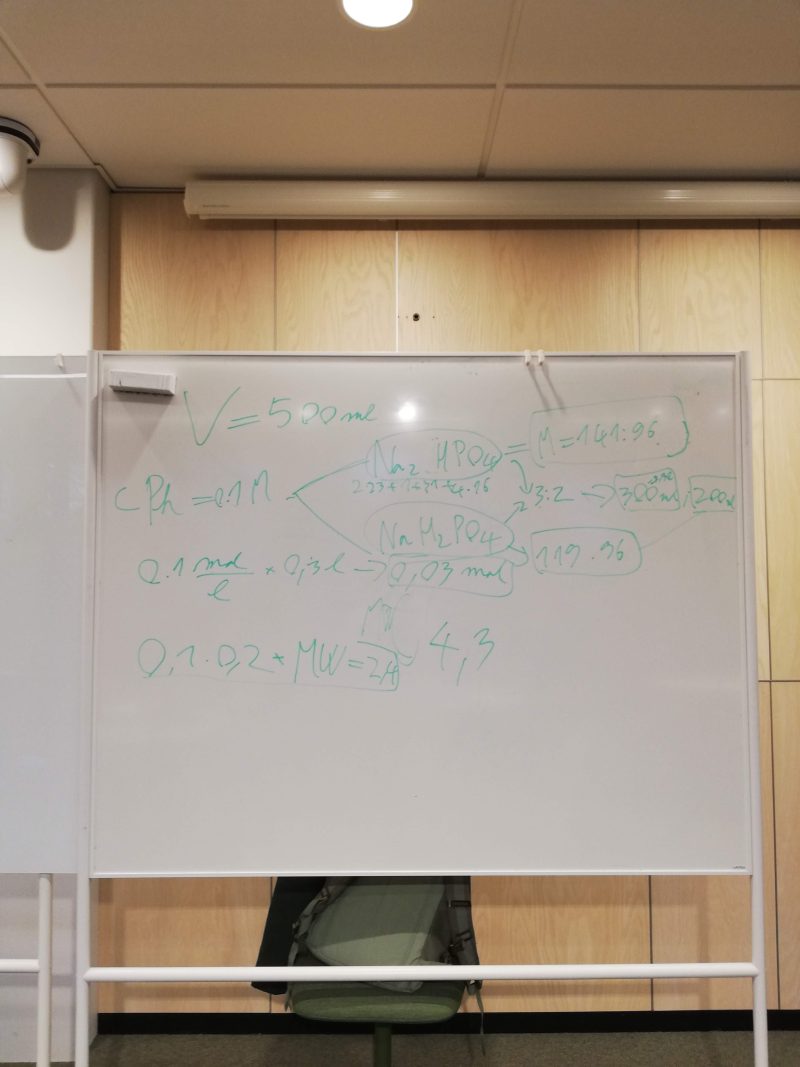 V = 500 ml
Na₂HPO₄ = M = 141.96
2·23+1+31+4·16
c Ph = 0.1 M
3:2 → 300 ml : 200 ml
NaH₂PO₄
119.96
0.1 mol/l × 0,3 l → 0,03 mol
MW
0,1 · 0,2 * MW = 2,4
4,3